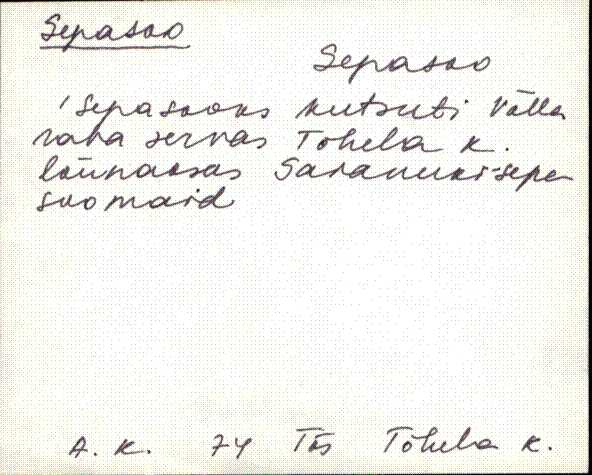 Sepasoo
Sepasoo
'Sepasooks kutsuti Võlla
raba servas Tõhela k.
lõunaosas Saranuki-sepa
soomaid
A. K. 74 Tõs Tõhela k.